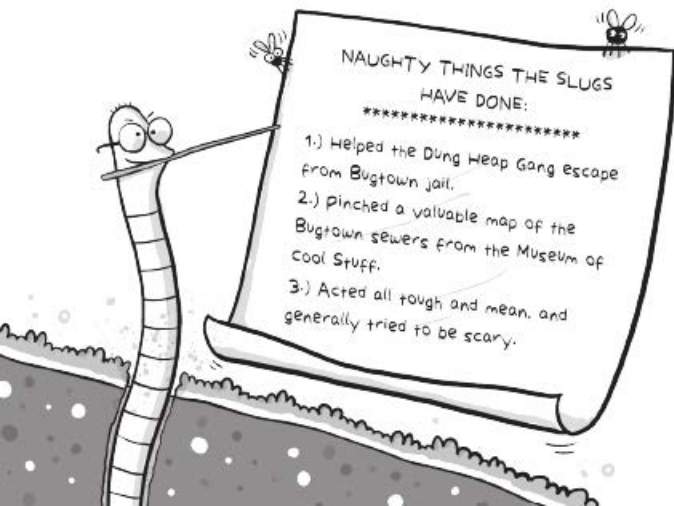 NAUGHTY THINGS THE SLUGS
HAVE DONE:
***********************
1.) Helped the Dung Heap Gang escape
from Bugtown jail.
2.) Pinched a valuable map of the
Bugtown sewers from the Museum of
Cool Stuff.
3.) Acted all tough and mean, and
generally tried to be scary.